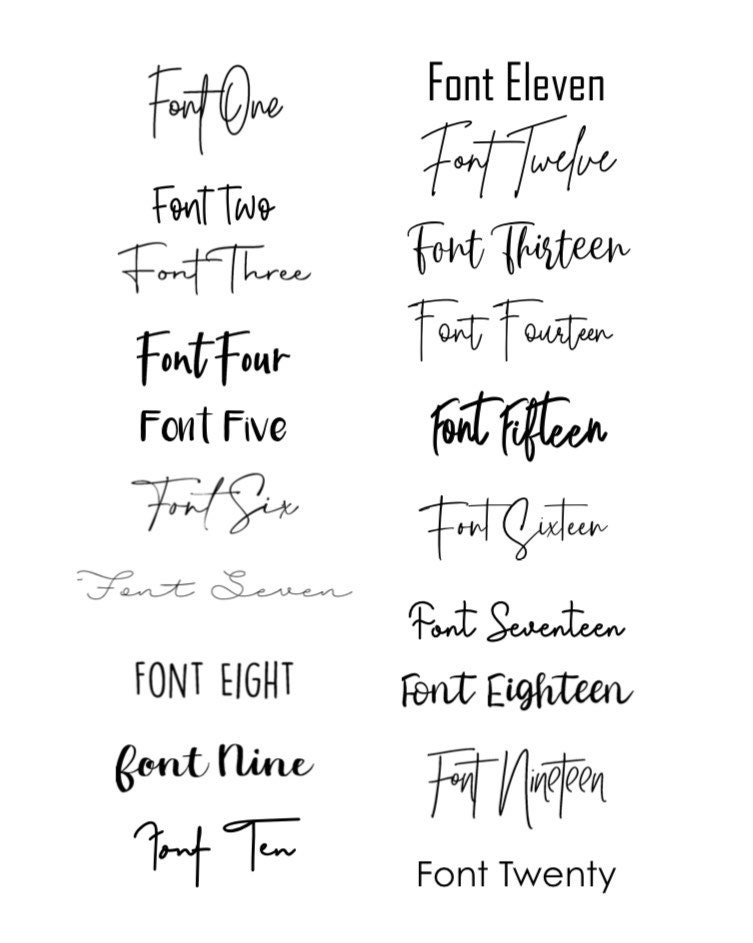 Font One
Font Two
Font Three
Font Four
Font Five
Font Six
Font Seven
FONT EIGHT
font Nine
Font Ten
Font Eleven
Font Twelve
Font Thirteen
Font Fourteen
Font Fifteen
Font Sixteen
Font Seventeen
Font Eighteen
Font Nineteen
Font Twenty